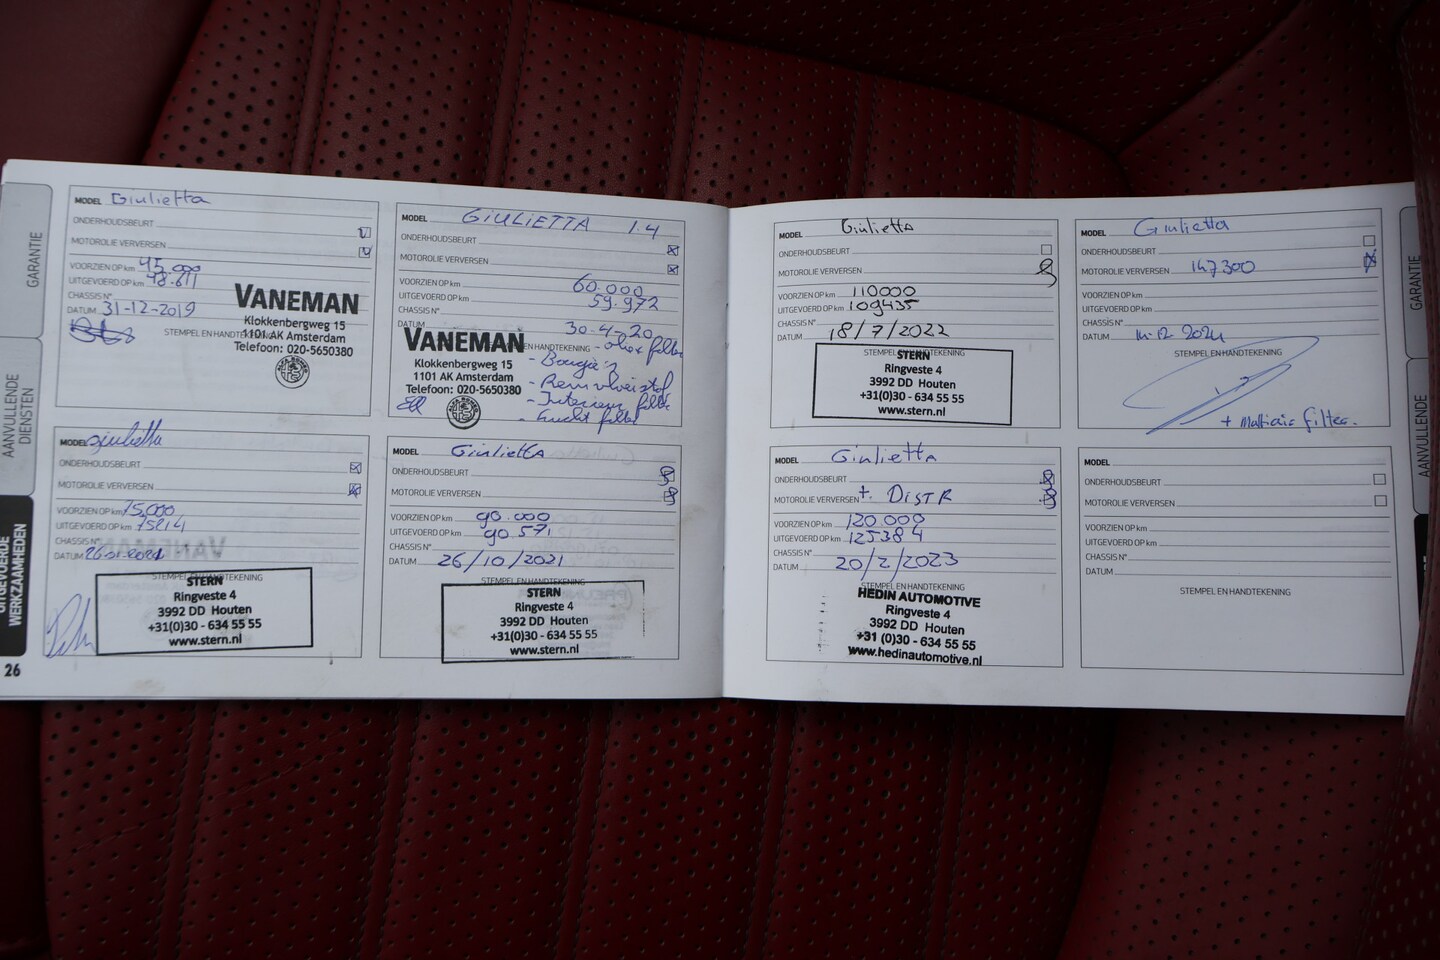 GARANTIE
AANVULLENDE
DIENSTEN
UITGEVOERDE
WERKZAAMHEDEN
26
MODEL Giulietta
ONDERHOUDSBEURT
MOTOROLIE VERVERSEN
VOORZIEN OP km 45.000
UITGEVOERD OP km 48.611
CHASSIS N°
DATUM 31-12-2019
STEMPEL EN HANDTEKENING
VANEMAN
Klokkenbergweg 15
1101 AK Amsterdam
Telefoon: 020-5650380
MODEL GIULIETTA 1.4
ONDERHOUDSBEURT
MOTOROLIE VERVERSEN
VOORZIEN OP km 60.000
UITGEVOERD OP km 59.972
CHASSIS N°
DATUM 30-4-20
EN HANDTEKENING
VANEMAN
Klokkenbergweg 15
1101 AK Amsterdam
Telefoon: 020-5650380
- olie + filter
- Bougie's
- Remvloeistof
- Interieur filter
- Lucht filter
MODEL giulietta
ONDERHOUDSBEURT
MOTOROLIE VERVERSEN
VOORZIEN OP km 75,000
UITGEVOERD OP km 75214
CHASSIS N°
DATUM
STEMPEL EN HANDTEKENING
STERN
Ringveste 4
3992 DD Houten
+31(0)30 - 634 55 55
www.stern.nl
MODEL Giulietta
ONDERHOUDSBEURT
MOTOROLIE VERVERSEN
VOORZIEN OP km 90.000
UITGEVOERD OP km 90.571
CHASSIS N°
DATUM 26/10/2021
STEMPEL EN HANDTEKENING
STERN
Ringveste 4
3992 DD Houten
+31(0)30 - 634 55 55
www.stern.nl
MODEL Giulietta
ONDERHOUDSBEURT
MOTOROLIE VERVERSEN
VOORZIEN OP km 110000
UITGEVOERD OP km 109435
CHASSIS N°
DATUM 18/7/2022
STEMPEL EN HANDTEKENING
STERN
Ringveste 4
3992 DD Houten
+31(0)30 - 634 55 55
www.stern.nl
MODEL Giulietta
ONDERHOUDSBEURT
MOTOROLIE VERVERSEN 147300
VOORZIEN OP km
UITGEVOERD OP km
CHASSIS N°
DATUM
STEMPEL EN HANDTEKENING
MODEL Giulietta
ONDERHOUDSBEURT
MOTOROLIE VERVERSEN + DISTR
VOORZIEN OP km 120.000
UITGEVOERD OP km 125384
CHASSIS N°
DATUM 20/2/2023
STEMPEL EN HANDTEKENING
HEDIN AUTOMOTIVE
Ringveste 4
3992 DD Houten
+31 (0)30 - 634 55 55
www.hedinautomotive.nl
MODEL
ONDERHOUDSBEURT
MOTOROLIE VERVERSEN
VOORZIEN OP km
UITGEVOERD OP km
CHASSIS N°
DATUM
STEMPEL EN HANDTEKENING
GARANTIE
AANVULLENDE